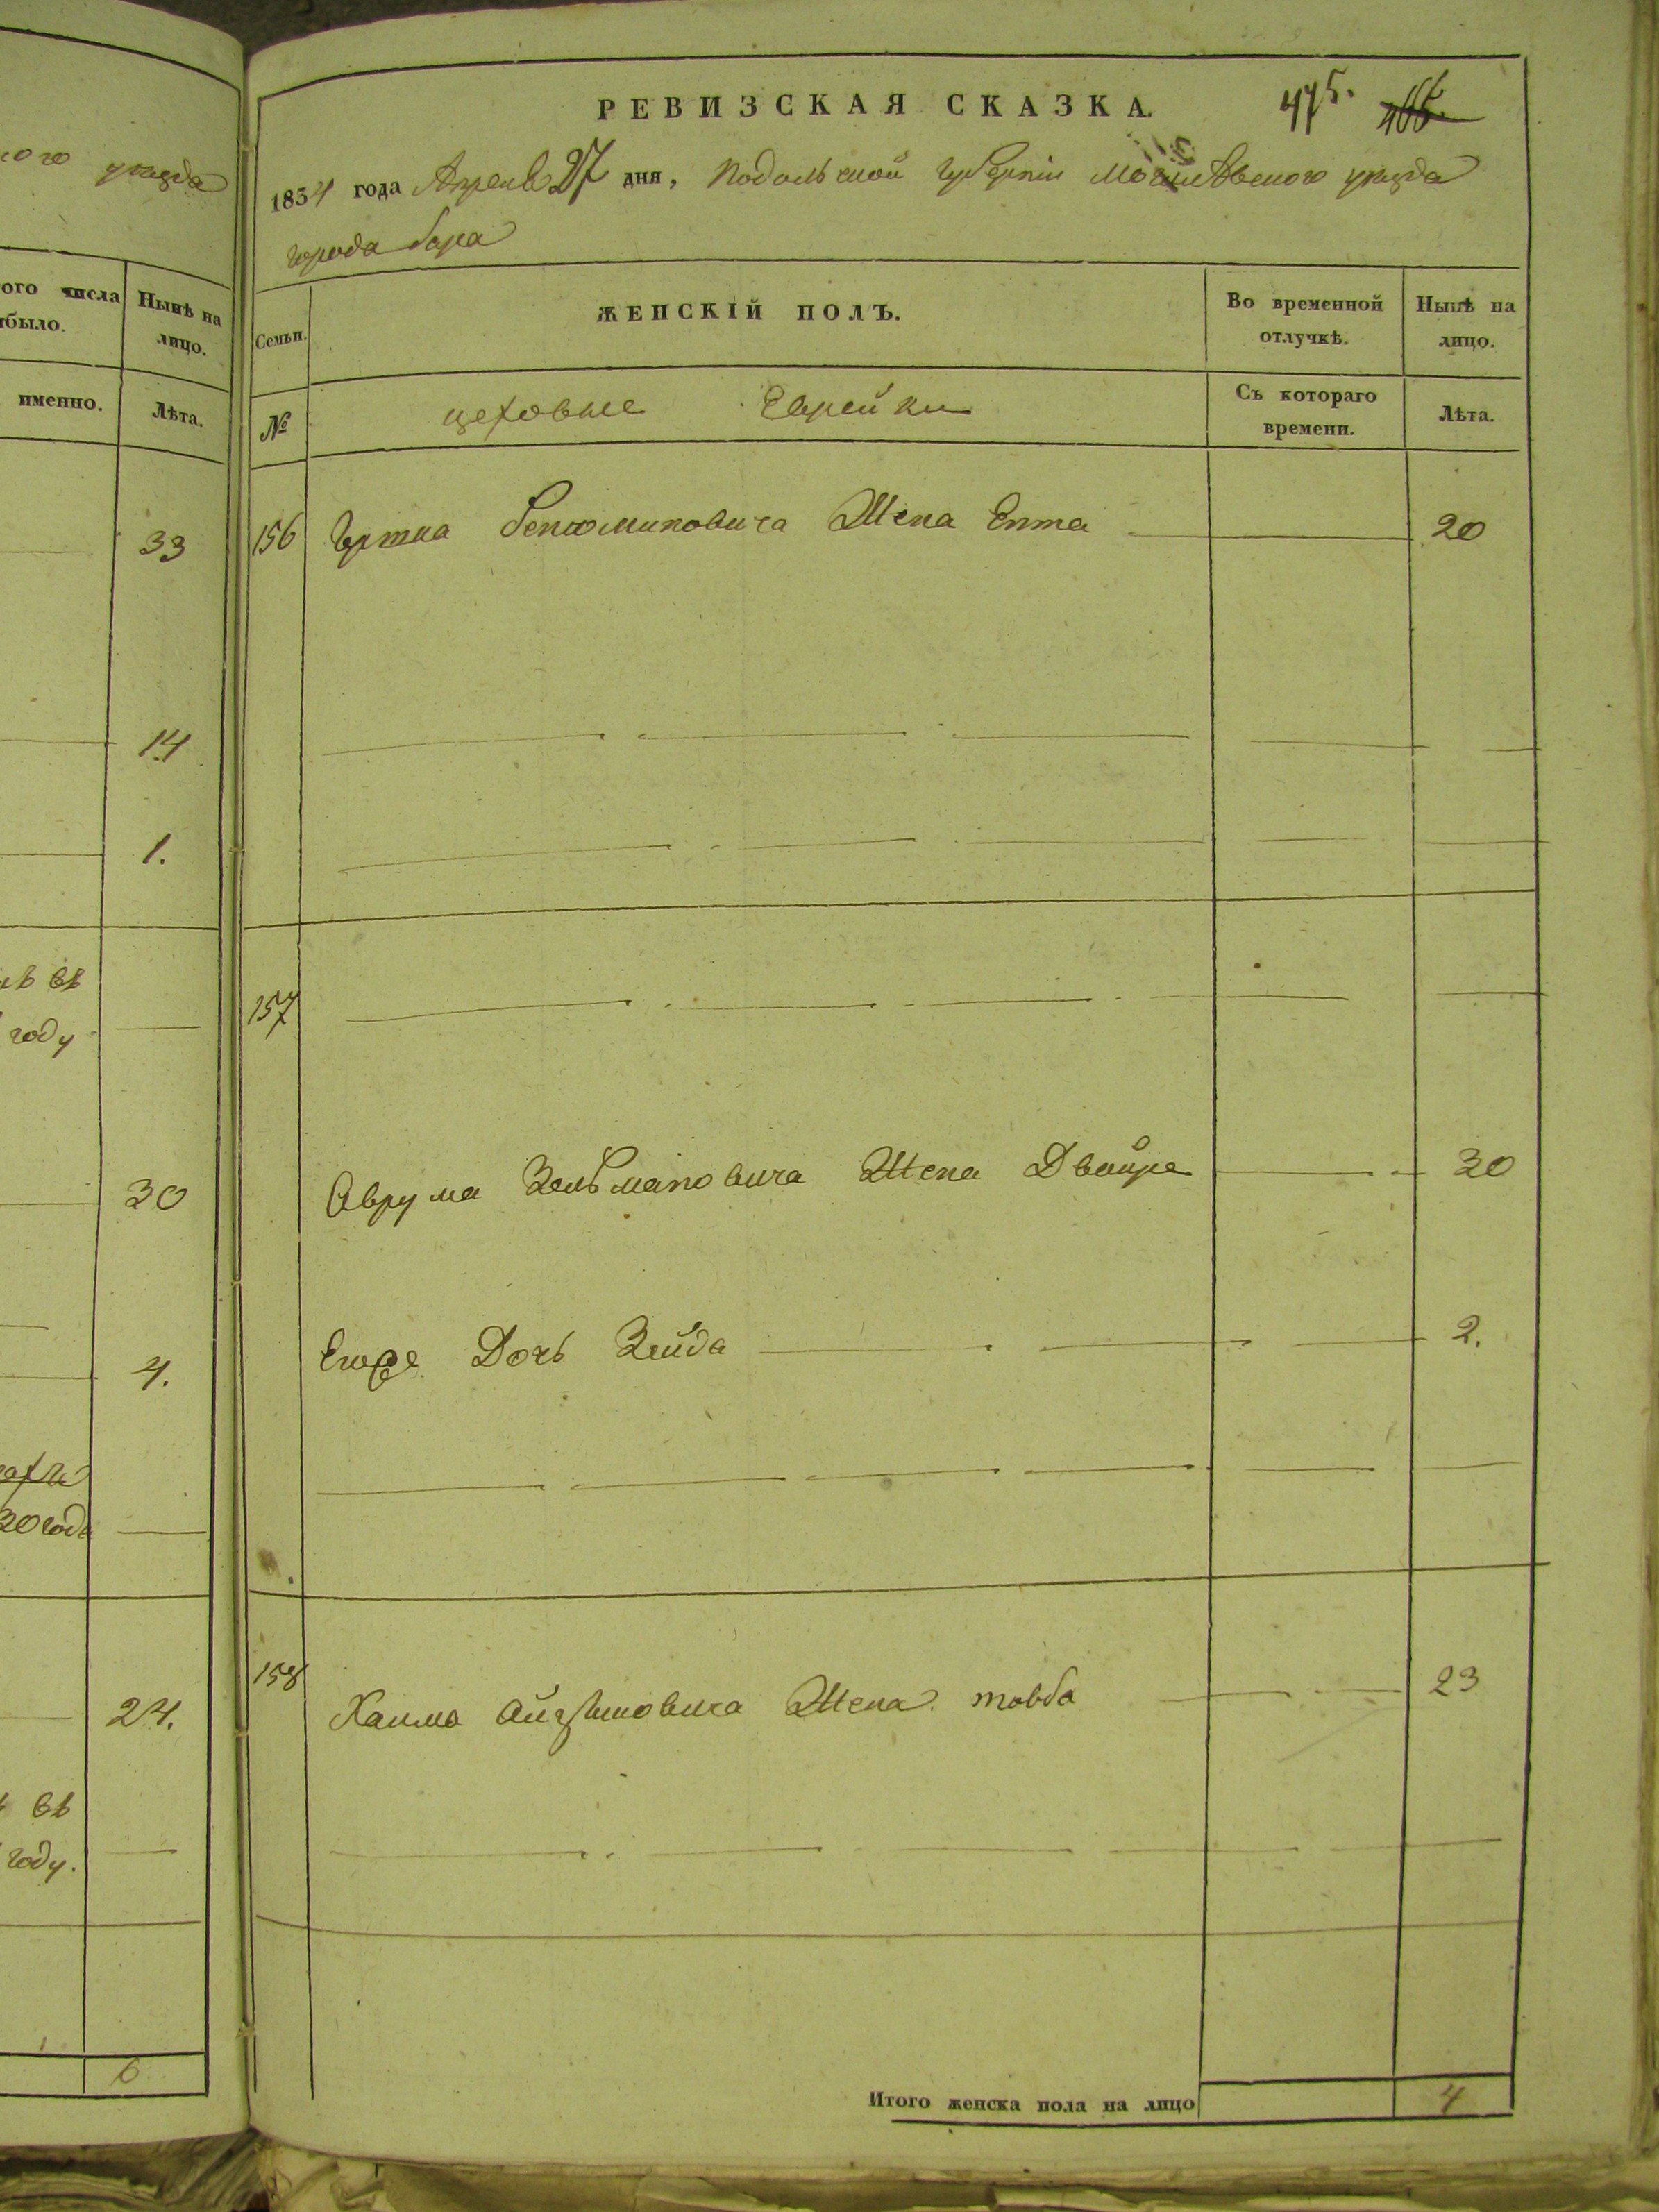 ного уезда
ого числа
было.
Нынѣ на
лицо.
именно.
Лѣта.
33
14
1.
въ
году
30
4.
30 года
24.
въ
году.
6
РЕВИЗСКАЯ СКАЗКА.
475.
1834 года Апреля 27 дня, Подольской Губерніи Могилѣвского уезда
города бара
Семьи.
ЖЕНСКІЙ ПОЛЪ.
Во временной
отлучкѣ.
Нынѣ на
лицо.
№
цеховые Еврейки
Съ котораго
времени.
Лѣта.
156 Бенюминовича Жена Ента 20
157
Аврума Зельмановича Жена Двойра 30
Егоже Дочь Зейда 2.
158 Хаима Жена товба 23
Итого женска пола на лицо 4